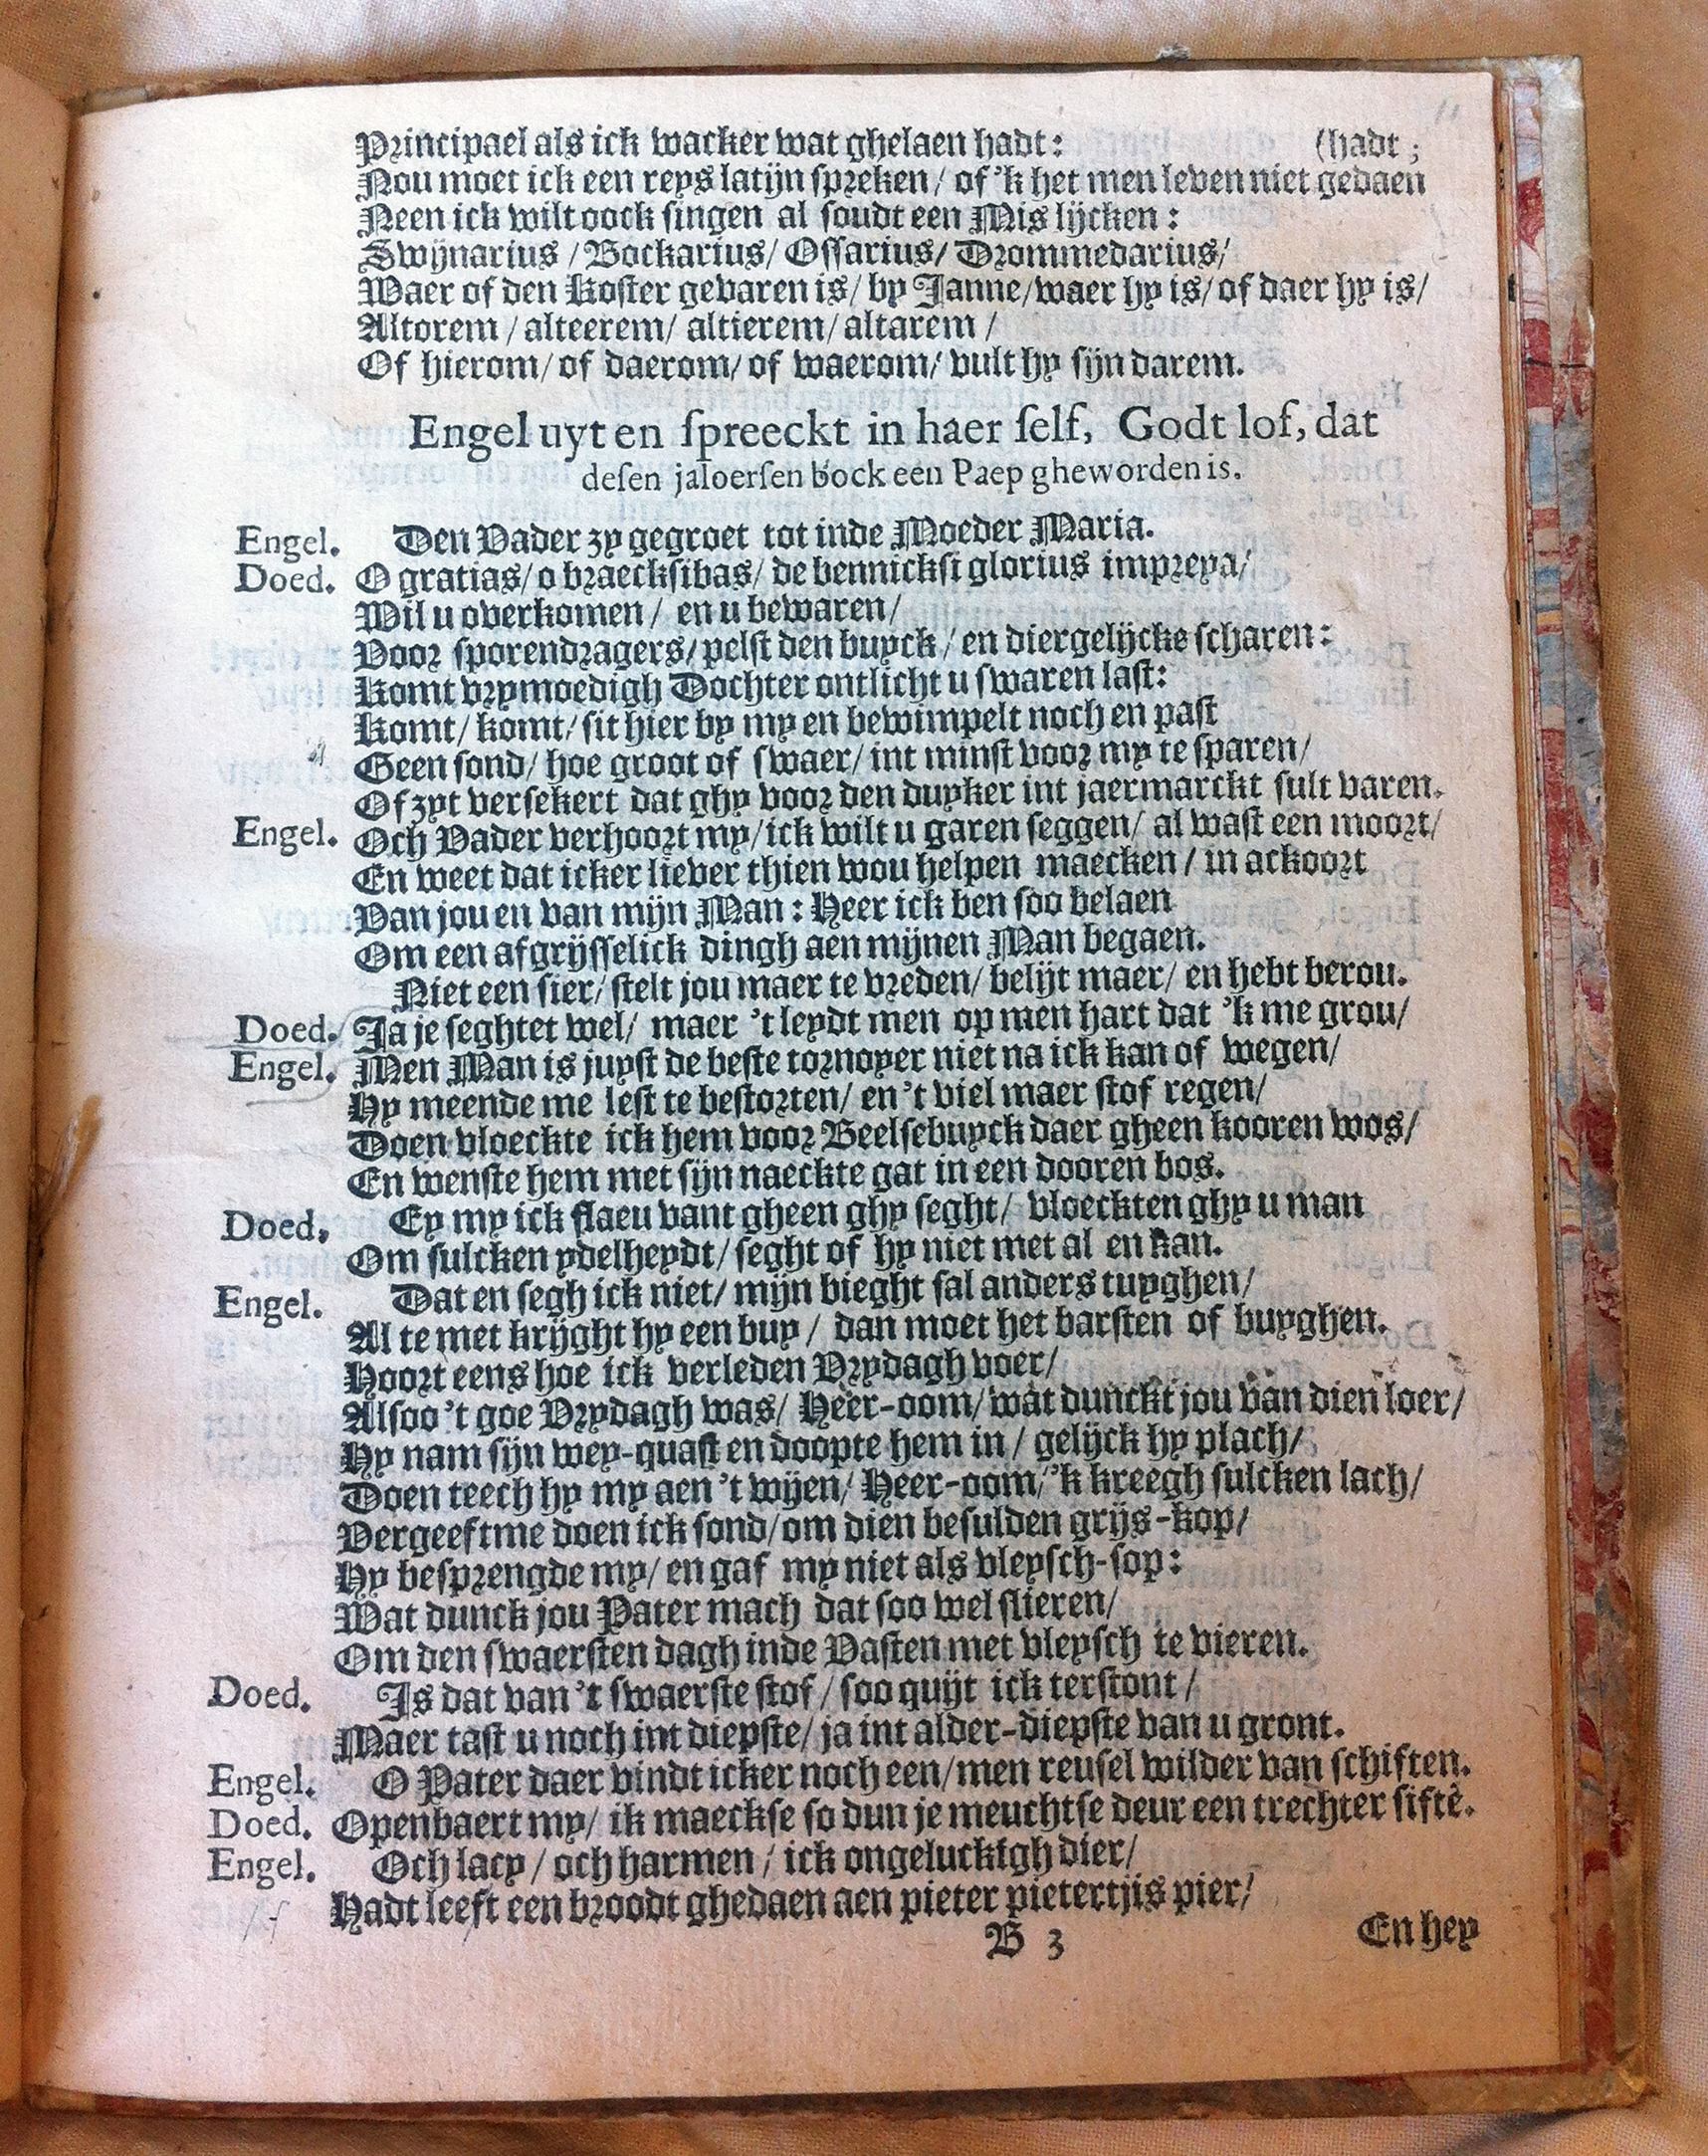 Principael als ick wacker wat ghelaen hadt: (hadt;
Nou moet ick een reys latijn spreken/ of 'k het men leven niet gedaen
Neen ick wilt oock singen al soudt een Mis lijcken:
Swijnarius / Bockarius/ Ossarius/ Drommedarius/
Waer of den Koster gevaren is/ by Janne/ waer hy is/ of daer hy is/
Altorem / alteerem/ altierem/ altarem /
Of hierom/ of daerom/ of waerom/ vult hy sijn darem.
Engel uyt en spreeckt in haer self, Godt lof, dat
desen jaloersen bock een Paep gheworden is.
Engel. Den Vader zy gegroet tot inde Moeder Maria.
Doed. O gratias/ o braecksibas/ de bennicksi glorius impreya/
Wil u overkomen / en u bewaren/
Voor sporendragers/ pelst den buyck / en diergelijcke scharen:
Komt vrymoedigh Dochter ontlicht u swaren last:
Komt/ komt/ sit hier by my en bewimpelt noch en past
Geen sond/ hoe groot of swaer/ int minst voor my te sparen/
Of zyt versekert dat ghy voor den duyker int jaermarckt sult varen.
Engel. Och Vader verhoort my/ ick wilt u garen seggen/ al wast een moort/
En weet dat icker liever thien wou helpen maecken / in ackoort
Van jou en van mijn Man: Heer ick ben soo belaen
Om een afgrijsselick dingh aen mijnen Man begaen.
Niet een sier/ stelt jou maer te vreden/ belijt maer/ en hebt berou.
Doed. Ja je seghtet wel/ maer 't leydt men op men hart dat 'k me grou/
Engel. Men Man is juyst de beste tornoyer niet na ick kan of wegen/
Hy meende me lest te bestorten/ en 't viel maer stof regen/
Doen vloeckte ick hem voor Beelsebuyck daer gheen kooren wos/
En wenste hem met sijn naeckte gat in een dooren bos.
Doed. Ey my ick flaeu vant gheen ghy seght/ vloeckten ghy u man
Om sulcken ydelheydt/ seght of hy niet met al en kan.
Engel. Dat en segh ick niet/ mijn bieght sal anders tuyghen/
Al te met krijght hy een buy / dan moet het barsten of buyghen.
Hoort eens hoe ick verleden Vrydagh voer/
Alsoo 't goe Vrydagh was/ Heer-oom/ wat dunckt jou van dien loer/
Hy nam sijn wey-quast en doopte hem in / gelijck hy plach/
Doen teech hy my aen 't wijen/ Heer-oom/ 'k kreegh sulcken lach/
Vergeeftme doen ick sond/ om dien besulden grijs-kop/
Hy besprengde my/ en gaf my niet als vleysch-sop:
Wat dunck jou Pater mach dat soo wel slieren/
Om den swaersten dagh inde Vasten met vleysch te vieren.
Doed. Is dat van 't swaerste stof / soo quijt ick terstont /
Maer tast u noch int diepste/ ja int alder-diepste van u gront.
Engel. O Pater daer vindt icker noch een/ men reusel wilder van schiften.
Doed. Openbaert my/ ik maeckse so dun je meuchtse deur een trechter siftē.
Engel. Och lacy / och harmen / ick ongeluckigh dier/
Hadt leeft een broodt ghedaen aen pieter pietertjis pier/
B 3 En hey